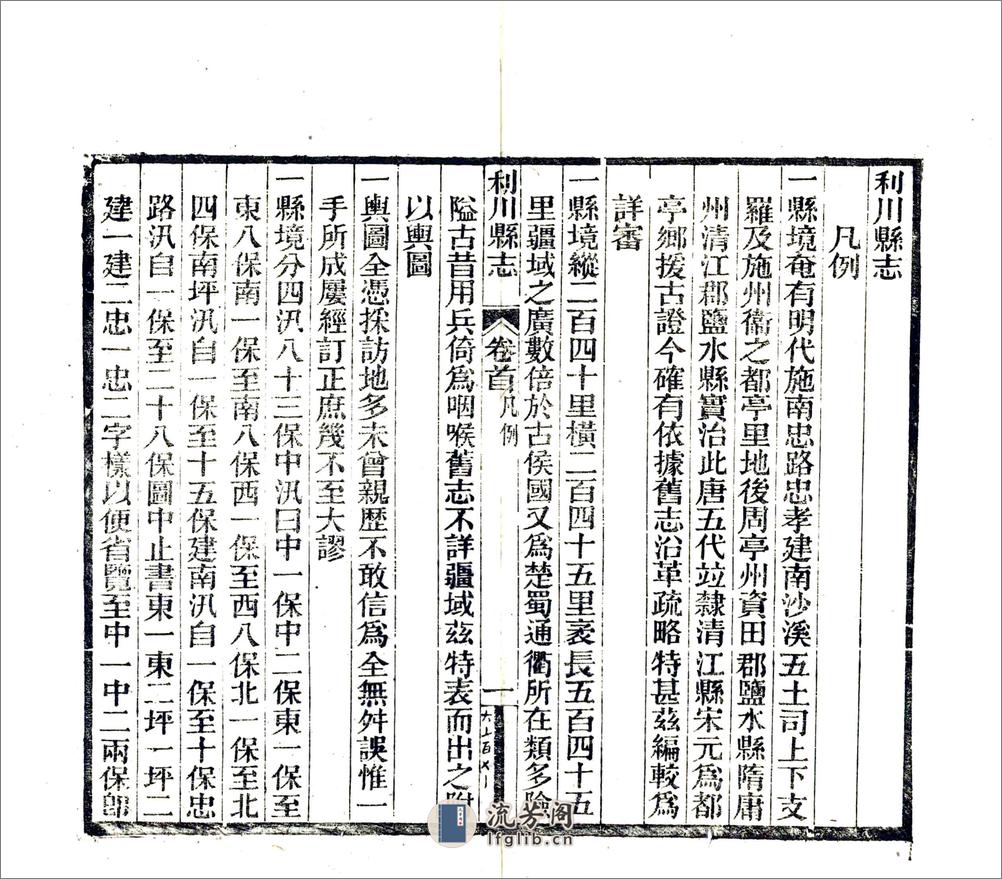 利川縣志
凡例
一縣境奄有明代施南忠路忠孝建南沙溪五土司上下支
羅及施州衞之都亭里地後周亭州資田郡鹽水縣隋庸
州清江郡鹽水縣實治此唐五代竝隸清江縣宋元爲都
亭鄉援古證今確有依據舊志沿革疏略特甚茲編較爲
詳審
一縣境縱二百四十里橫二百四十五里袤長五百四十五
里疆域之廣數倍於古侯國又爲楚蜀通衢所在類多險
利川縣志 卷首 凡例 一
隘古昔用兵倚爲咽喉舊志不詳疆域茲特表而出之附
以輿圖
一輿圖全憑採訪地多未曾親歷不敢信爲全無舛誤惟一
手所成屢經訂正庶幾不至大謬
一縣境分四汛八十三保中汛曰中一保中二保東一保至
東八保南一保至南八保西一保至西八保北一保至北
四保南坪汛自一保至十五保建南汛自一保至十保忠
路汛自一保至二十八保圖中止書東一東二坪一坪二
建一建二忠一忠二字樣以便省覽至中一中二兩保郎
流芳阁
lfglib.cn